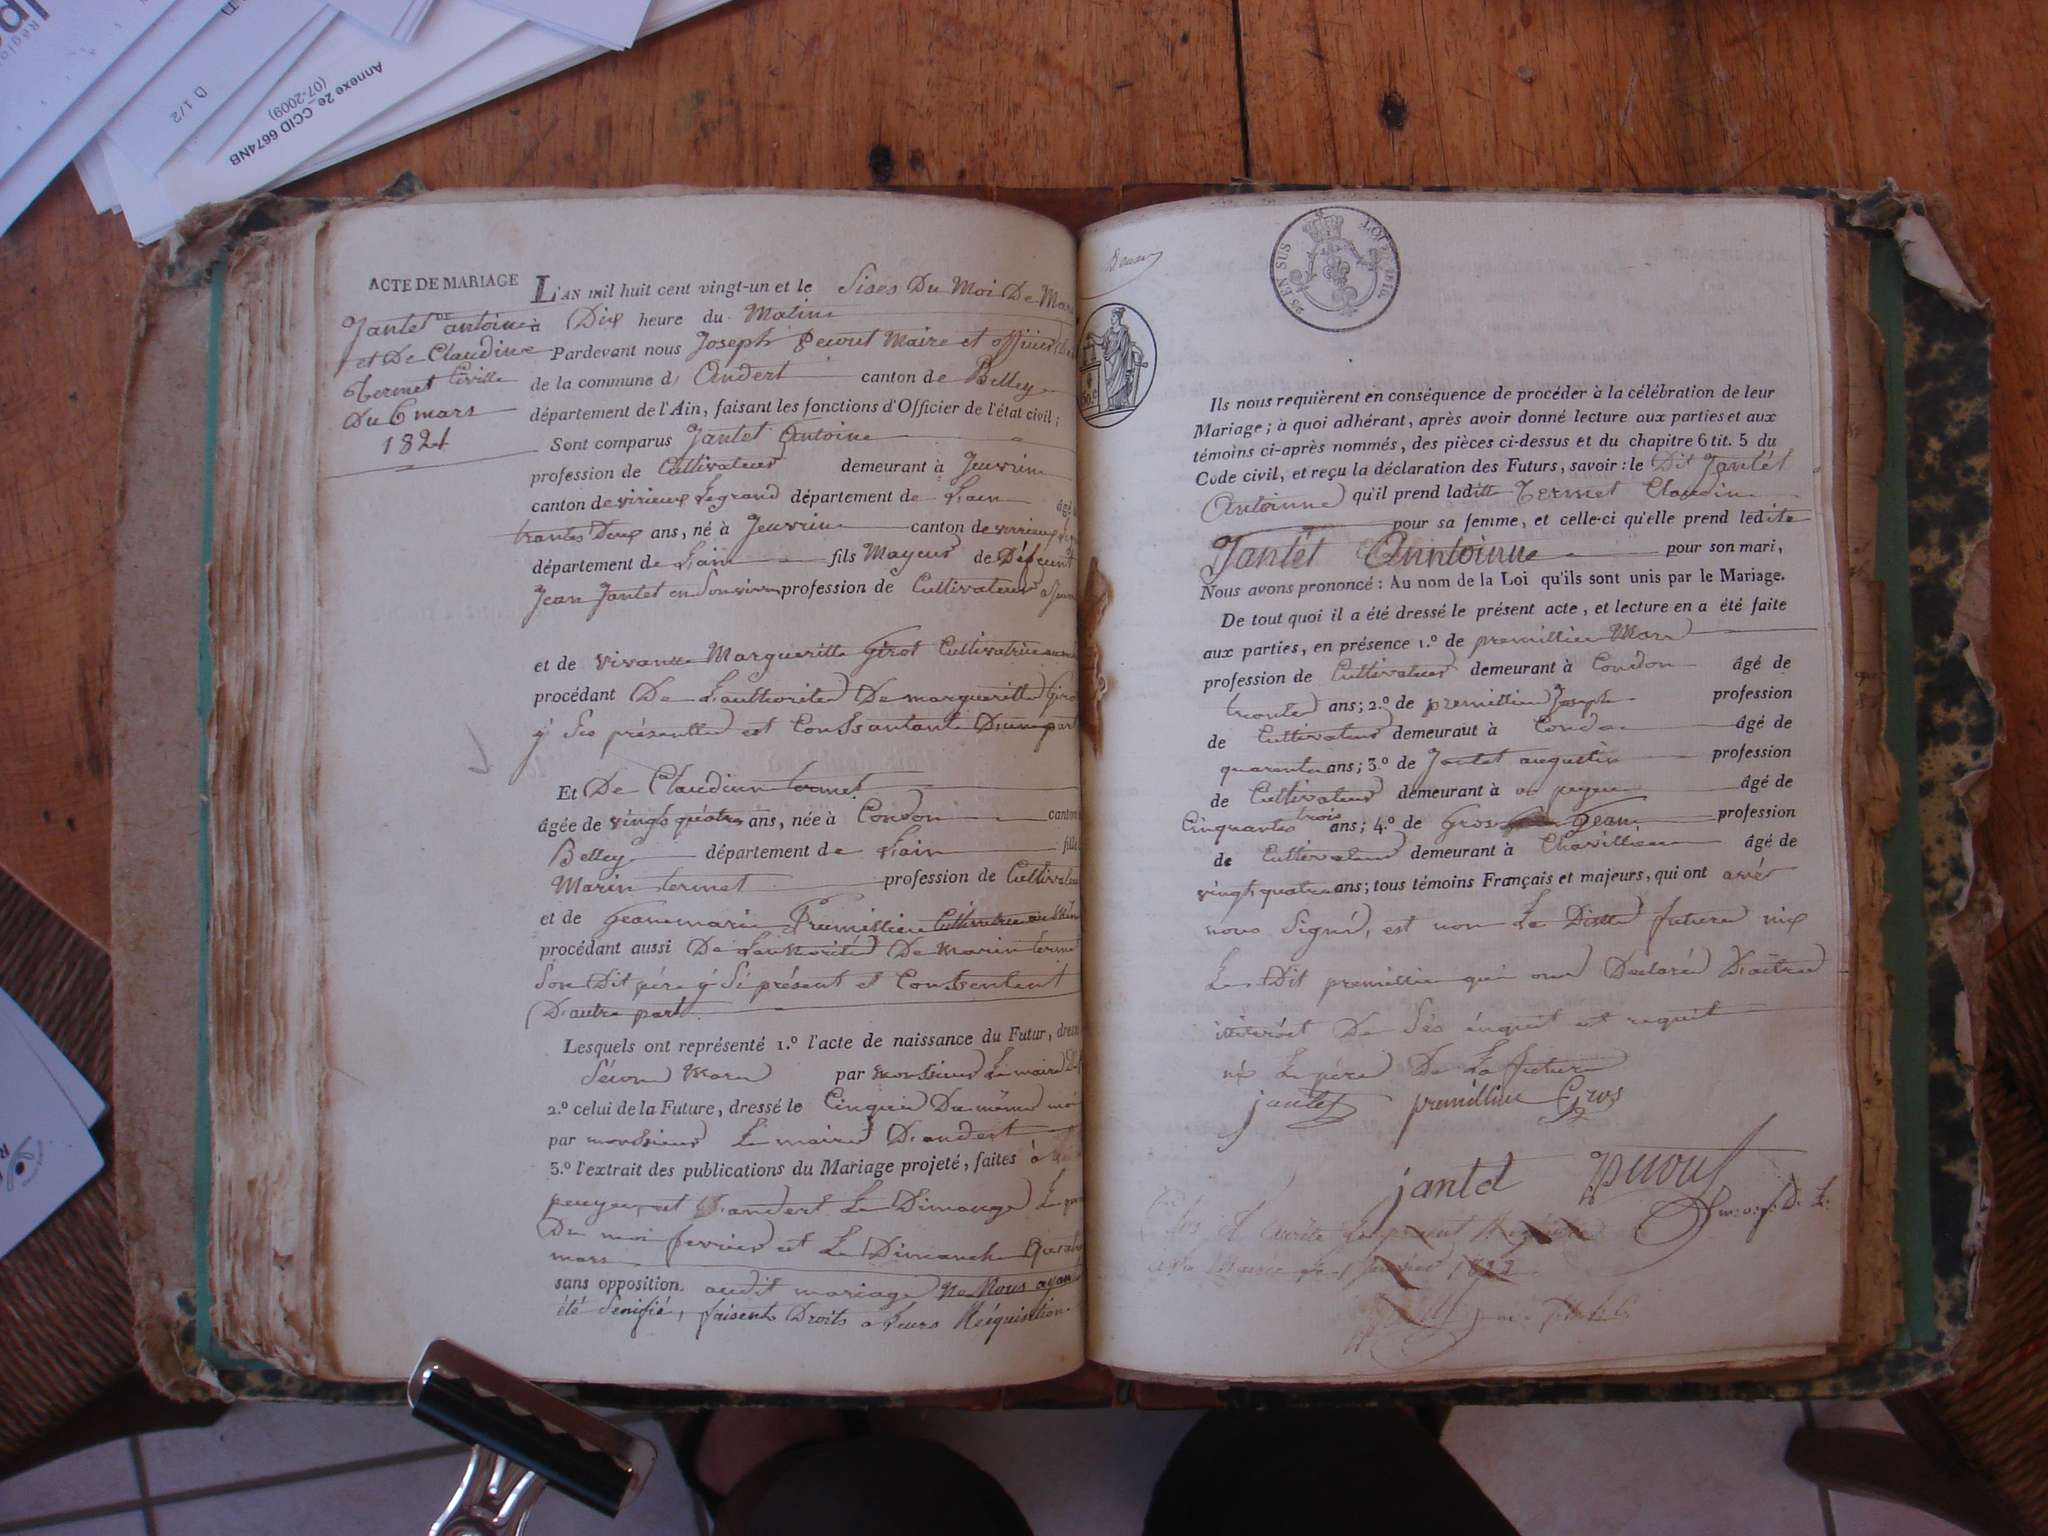 Annexe 2e_CCID 6674NB
(07-2009)
D 1/2
ACTE DE MARIAGE
DE
Jantet antoine
et De Claudine
termet Civille
Du 6 mars
1821
L'AN mil huit cent vingt-un et le Sises Du Moi De Mars
à Dix heure du Matin
Pardevant nous Joseph pecout Maire et officier
de la commune d'Andert canton de Belley
département de l'Ain, faisant les fonctions d'Officier de l'état civil;
Sont comparus Jantet Antoine
profession de Cultivateur demeurant à Jeuvrin
canton de virieux Legrand département de Lain âgé
trantes deux ans, né à Jeuvrin canton de virieux
département de Lain fils Mayeur de Défeunt
Jean Jantet en Son vivan profession de Cultivateur
et de vivante Margueritte Girot Cultivatrice
procédant De Lauthorité De margueritte Giro
y Ses présente et Conssantante D'une part
Et De Claudine termet
âgée de vingt quatre ans, née à Condon canton
Belley département de Lain fille
Marin termet profession de Cultivateu
et de Jeanmarie Premillieu
procédant aussi De Lauthorité De Marin terme
Son Dit père y Si présent et Conssentent
D'autre part.
Lesquels ont représenté 1.º l'acte de naissance du Futur, dressé
Sécond Mars par monssieur Le maire
2.º celui de la Future, dressé le Cinquie Du même moi
par monssieur Le maire D'andert
3.º l'extrait des publications du Mariage projeté, faites à
peuyeu et D'andert Le Dimange Le
Du moi fevrier et Le Dimanche
mars
sans opposition. audit mariage Ne Nous ayan
été Senifié, faisent Droits a Leurs Réquisition.
25 EN SUS
LOI 1816
50.c
Ils nous requièrent en conséquence de procéder à la célébration de leur
Mariage; à quoi adhérant, après avoir donné lecture aux parties et aux
témoins ci-après nommés, des pièces ci-dessus et du chapitre 6 tit. 5 du
Code civil, et reçu la déclaration des Futurs, savoir: le Dit Jantét
Antoinne qu'il prend laditte termet Claudine
pour sa femme, et celle-ci qu'elle prend ledite
Jantét Anntoinne pour son mari,
Nous avons prononcé: Au nom de la Loi qu'ils sont unis par le Mariage.
De tout quoi il a été dressé le présent acte, et lecture en a été faite
aux parties, en présence 1.º de premillieu Marc
profession de Cultivateur demeurant à Condon âgé de
trente ans; 2.º de premillieu Joseph profession
de Cultivateur demeurant à Condon âgé de
quarente ans; 3.º de Jantet augustin profession
de Cultivateur demeurant à âgé de
Cinquantes trois ans; 4.º de Gros Jean profession
de Cultivateur demeurant à Chavillieu âgé de
vingt quatre ans; tous témoins Français et majeurs, qui ont avéc
nous Signé, est non La Ditte future nix
Le Dit premillieu qui ond Declaré D'aitre
De Sés énquit est requit
nix Le pére De La future
jantet premillieu Gros
jantet Pecout
m: o: p: D: L:
Clos et arrêté le présent Registre
a la Mairie le 1 janvier 1822